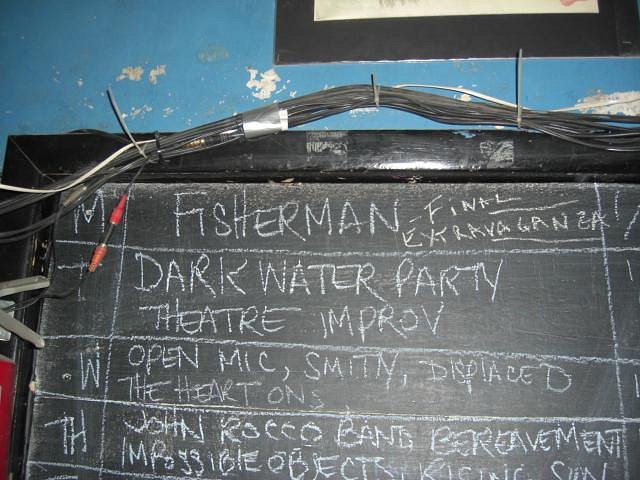 M FISHERMAN - FINAL
EXTRAVAGANZA!
T DARK WATER PARTY
THEATRE IMPROV
W OPEN MIC, SMITN, DISPLACED
THE HEART ONS
TH JOHN ROCCO BAND, BEREAVEMENT
IMPOSSIBLE OBJECTS, RISING SUN